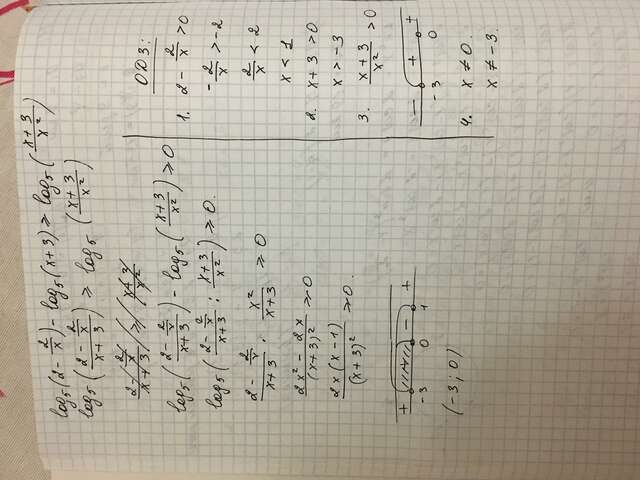 log₅(2 - 2/x) - log₅(x+3) ≥ log₅((x+3)/x²)
log₅((2 - 2/x)/(x+3)) ≥ log₅((x+3)/x²)
log₅((2 - 2/x)/(x+3)) - log₅((x+3)/x²) ≥ 0
log₅((2 - 2/x)/(x+3) : (x+3)/x²) ≥ 0.
(2 - 2/x)/(x+3) · x²/(x+3) ≥ 0
(2x² - 2x)/(x+3)² ≥ 0
2x(x-1)/(x+3)² ≥ 0.
+ - +
-3 0 1
(-3; 0)
ОДЗ:
1. 2 - 2/x > 0
-2/x > -2
2/x < 2
x < 1
2. x + 3 > 0
x > -3
3. (x+3)/x² > 0
- + +
-3 0
4. x ≠ 0.
x ≠ -3.